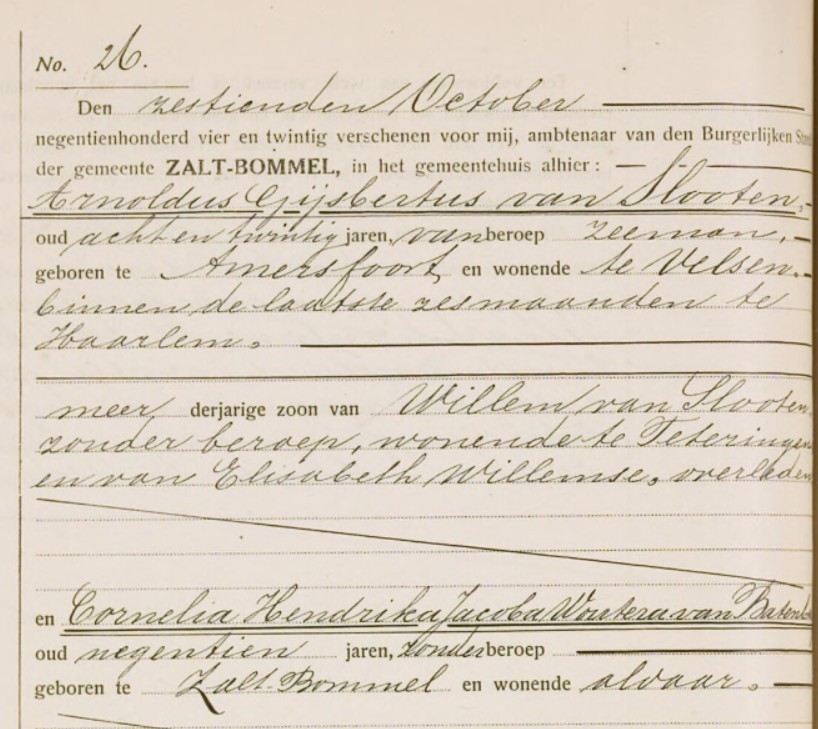 No. 26.
Den zestienden October
negentienhonderd vier en twintig verschenen voor mij, ambtenaar van den Burgerlijken
der gemeente ZALT-BOMMEL, in het gemeentehuis alhier:
Arnoldus Gijsbertus van Slooten,
oud acht en twintig jaren, van beroep zeeman,
geboren te Amersfoort, en wonende te Velsen,
binnen de laatste zesmaanden te
Haarlem,
meer derjarige zoon van Willem van Slooten,
zonder beroep, wonende te Teteringen
en van Elisabeth Willemse, overleden
en Cornelia Hendrika Jacoba Woutera van
oud negentien jaren, zonder beroep
geboren te Zalt-Bommel en wonende aldaar,